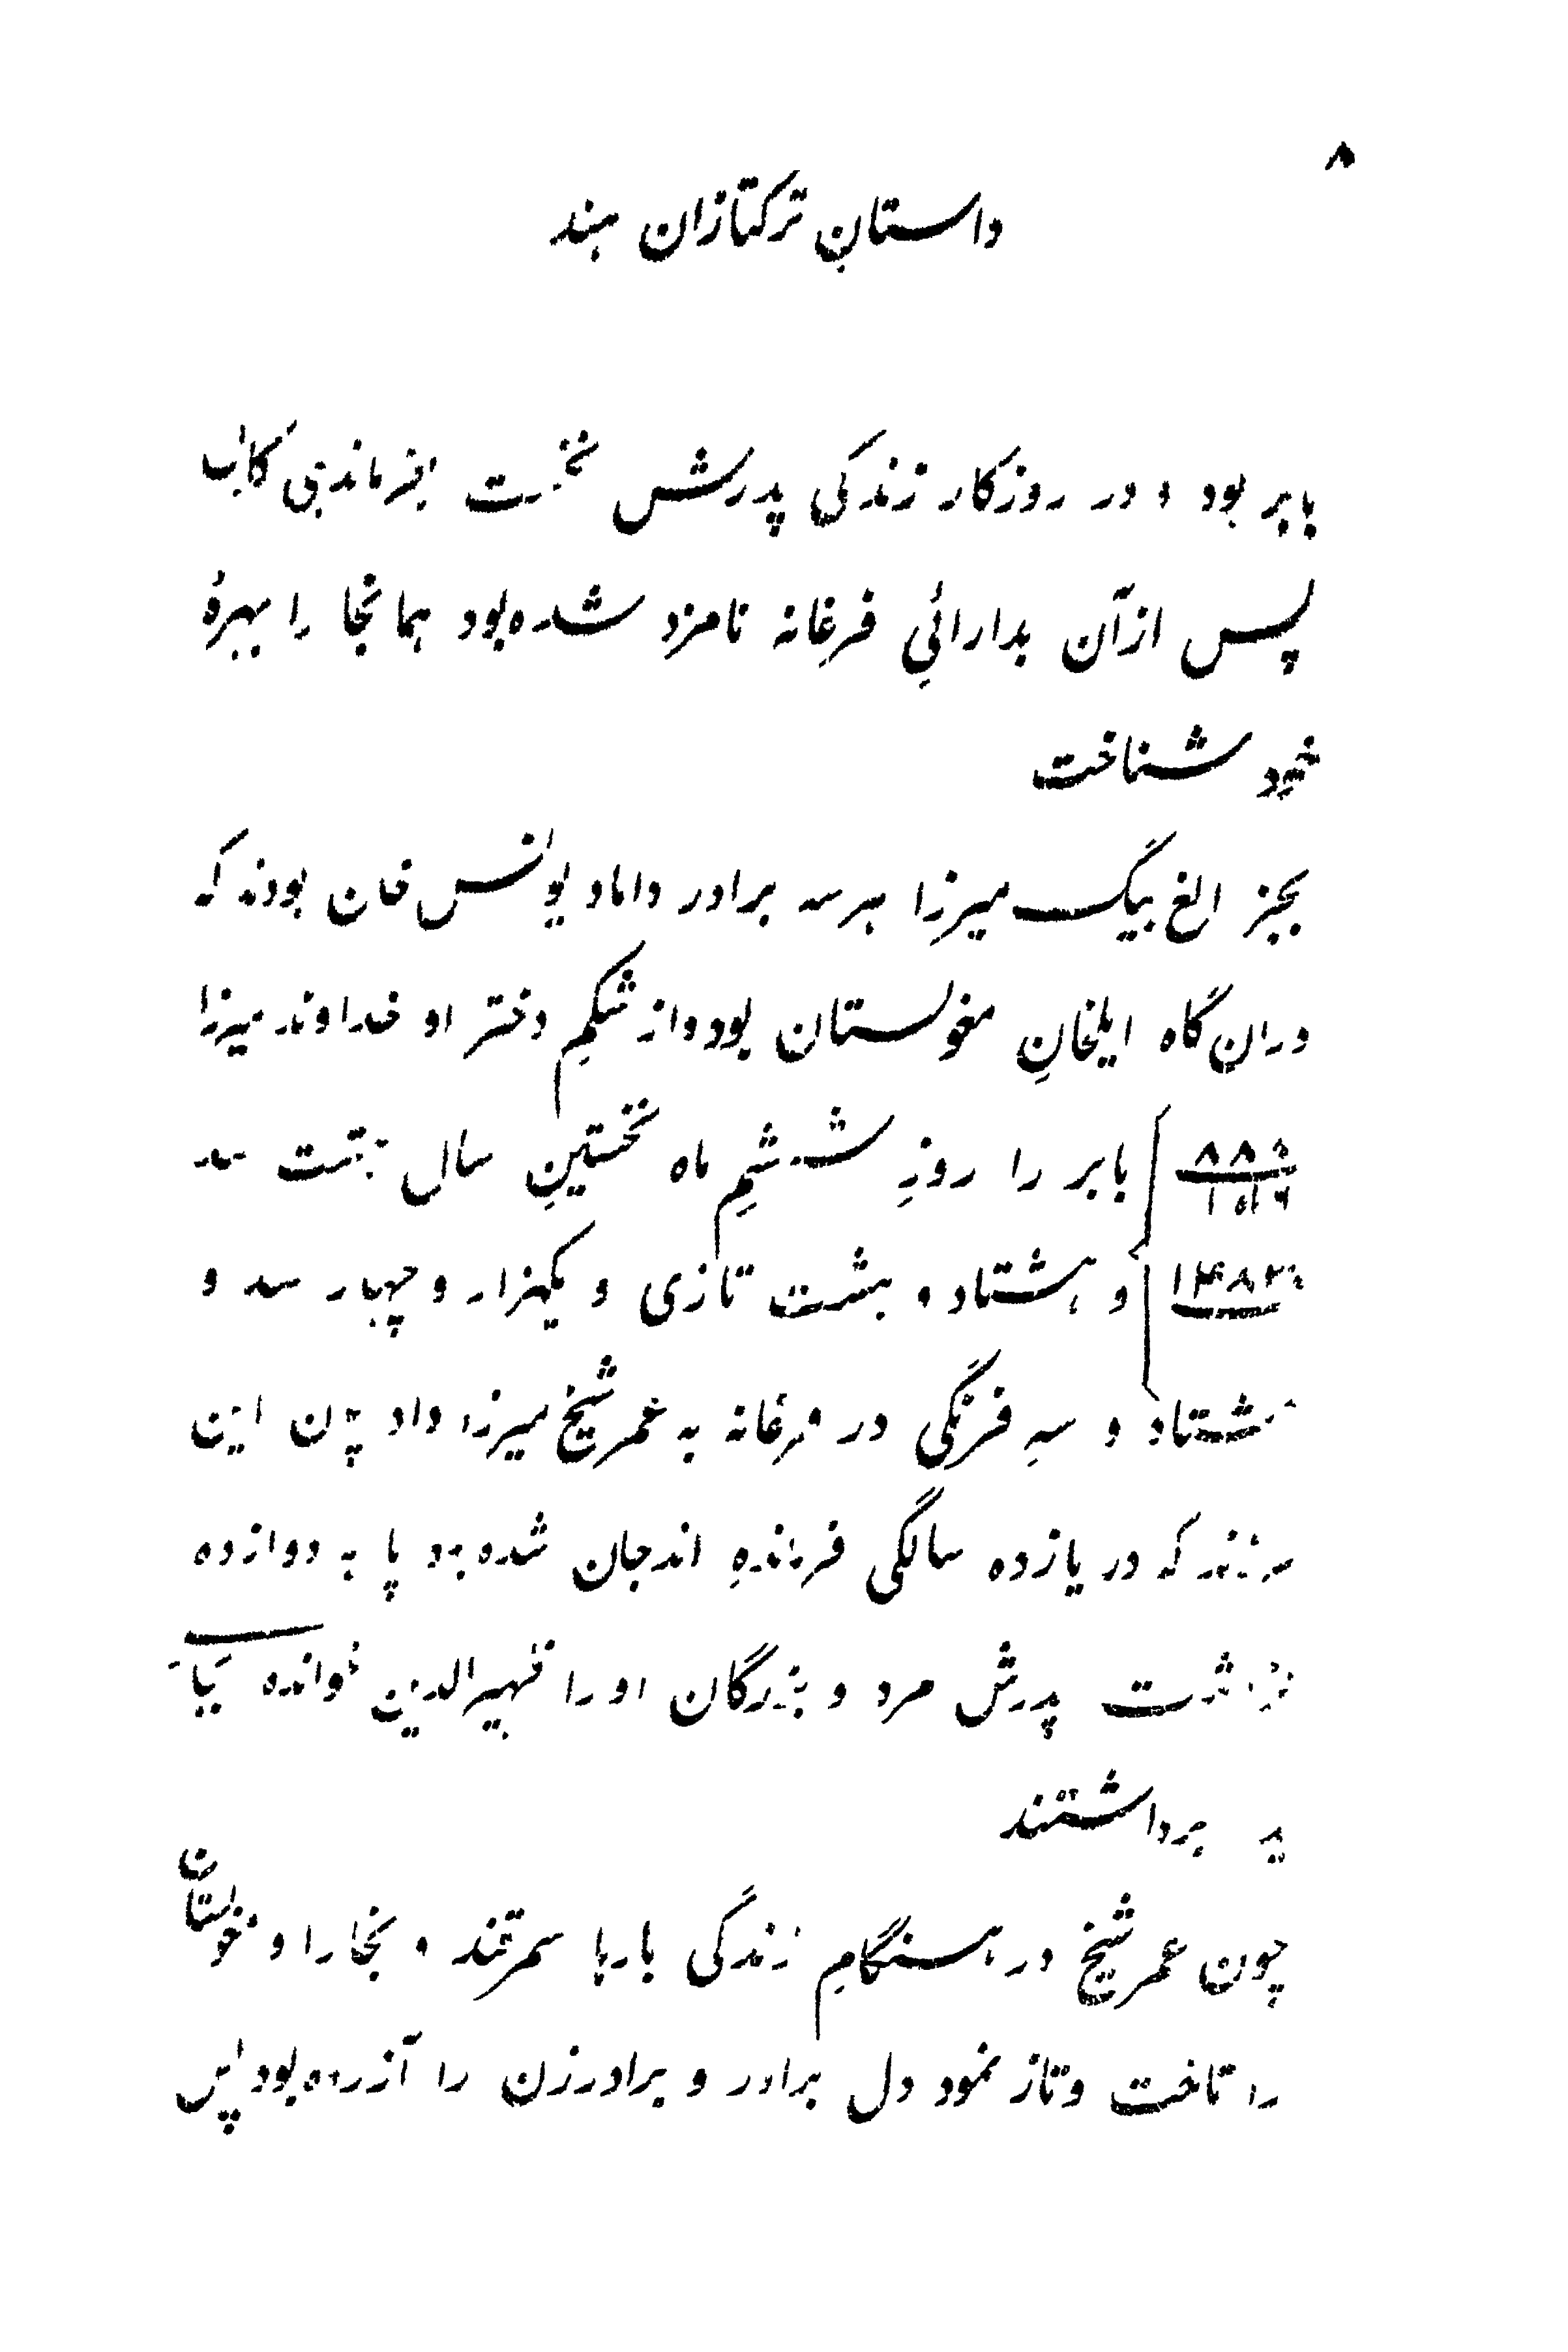 ۸
داستانِ ترکتازان هند
بابر بود و در روزکار زندکی پدرش نخست بفرماندهی کابل
پس ازآن بدارائیِ فرغانه نامزد شده بود همانجا را ببهرهٔ
خود شناخت
بجز الغ بیگ میرزا هرسه برادر داماد یونس خان بودند که
دران گاه ایلخانِ مغولستان بود و از شکمِ دختر او خداوند میرزا
۸۸۸ بابر را روزِ ششمِ ماه نخستینِ سال هشت سد
۱۴۸۳ و هشتاد و هشت تازی و یکهزار و چهار سد و
هشتاد و سهِ فرنگی در فرغانه به عمر شیخ میرزا داد چون این
فرزند که در یازده سالگی فرماندهِ اندجان شده بود پا به دوازده
گذاشت پدرش مرد و بزرگان او را ظهیرالدین خوانده
برداشتند
چون عمر شیخ در هنگامِ زندگی بارها سمرقند و بخارا و مغولستان
را تاخت و تاز نمود دل برادر و برادرزن را آزرده بود پس